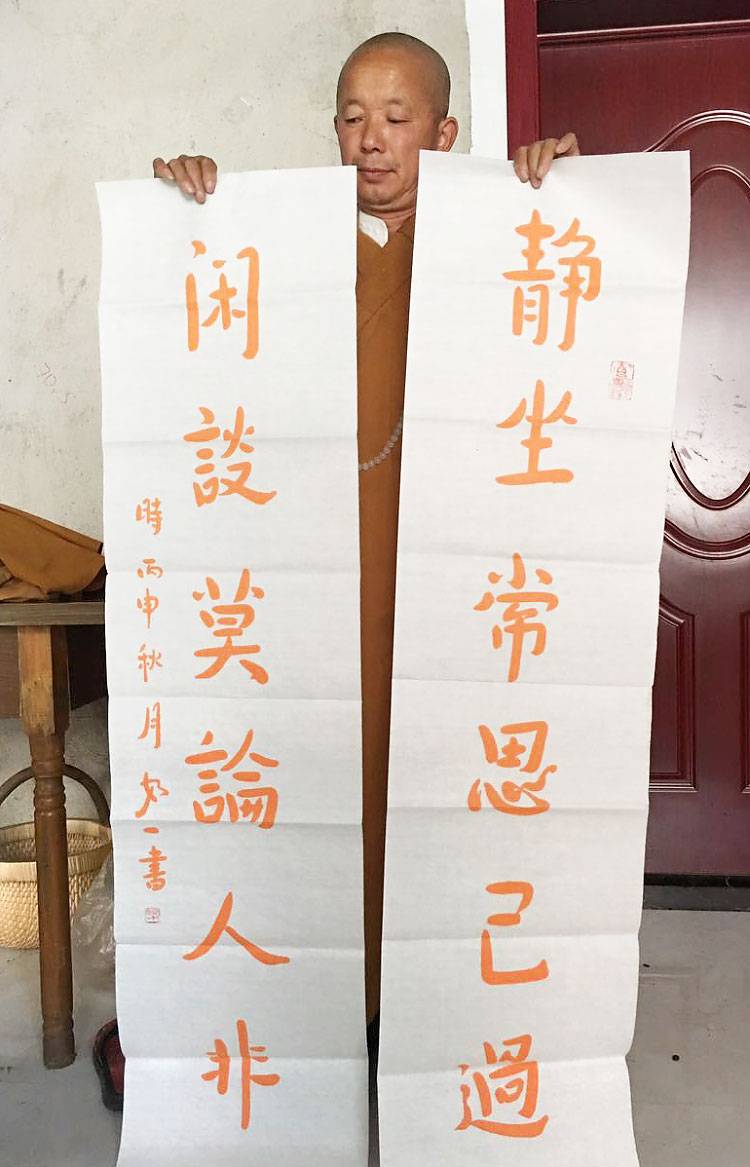 静坐常思己過
闲談莫論人非
時丙申秋月一書